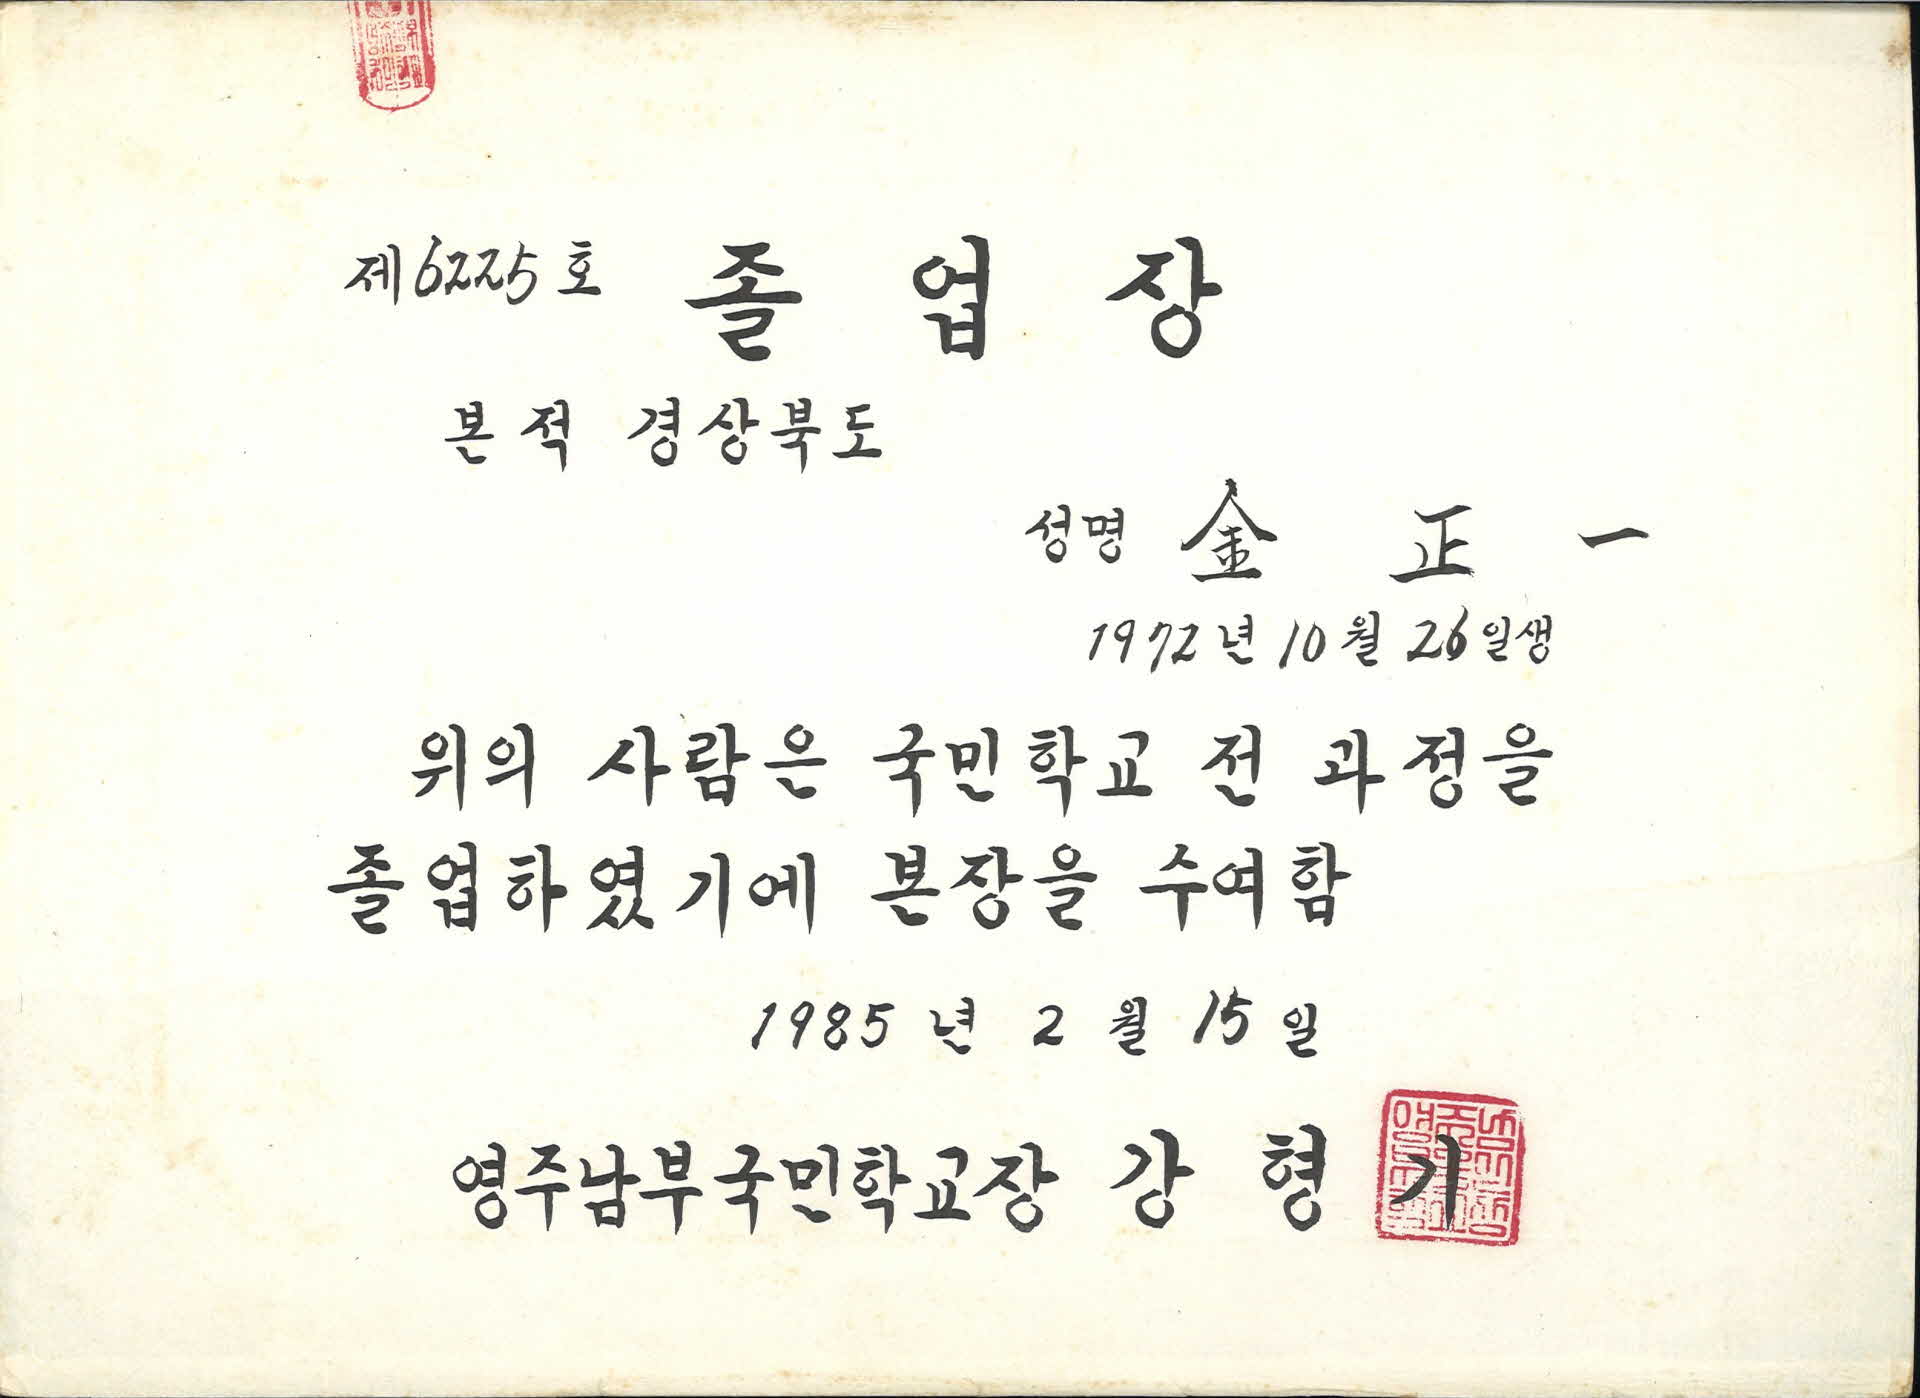 제6225호 졸업장
본적 경상북도
성명 金正一
1972년 10월 26일생
위의 사람은 국민학교 전 과정을
졸업하였기에 본장을 수여함
1985년 2월 15일
영주남부국민학교장 강형기